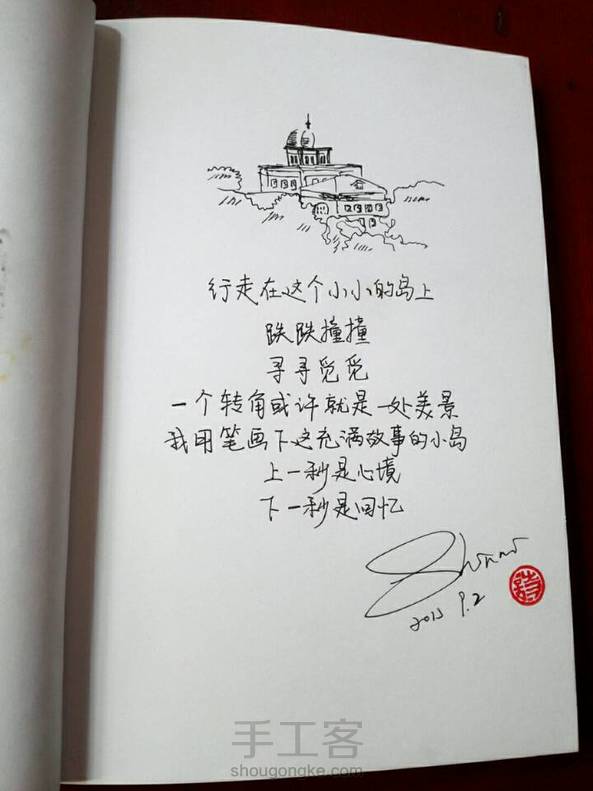 行走在这个小小的岛上
跌跌撞撞
寻寻觅觅
一个转角或许就是一处美景
我用笔画下这充满故事的小岛
上一秒是心境
下一秒是回忆
9.2
手工客
shougongke.com